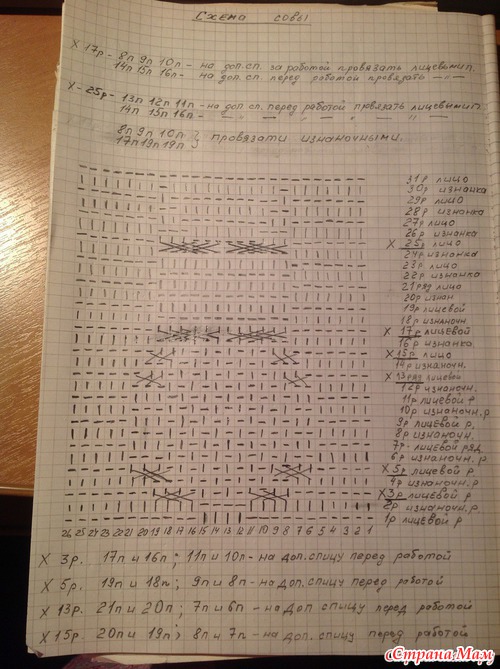 Схема совы
X 17р - 8п 9п 10п - на доп.сп. за работой провязать лицевыми п.
14п 15п 16п - на доп.сп. перед работой провязать —"—
X - 25р - 13п 12п 11п - на доп.сп. перед работой провязать лицевыми п.
14п 15п 16п - —"— —"— —"— —"—
8п 9п 10п } провязати изнаночными.
17п 19п 19п
31р лицо
30р изнанка
29р лицо
28р изнанка
27р лицо
26р изнанка
X 25р лицо
24р изнанка
23р лицо
22р изнанка
21ряд лицо
20р изнан
19р лицевой
18р изнаночн
X 17р лицевой
16р изнанка
X 15р лицо
14р изнаночн.
X 13ряд лицевой
12р изнаночн.
11р лицевой р
10р изнаночн. р
9р лицевой р.
8р изнаночн.
7р - лицевой ряд
6р изнаночн. р
X 5р лицевой р
4р изнаночн. р
X 3р лицевой р
2р изнаночн. р
1р лицевой р
26 25 24 23 22 21 20 19 18 17 16 15 14 13 12 11 10 9 8 7 6 5 4 3 2 1
X 3р. 17п и 16п ; 11п и 10п - на доп. спицу перед работой
X 5р. 19п и 18п ; 9п и 8п - на доп. спицу перед работой
X 13р. 21п и 20п ; 7п и 6п - на доп спицу перед работой
X 15р. 20п и 19п ; 8п и 7п - на доп. спицу перед работой
Страна Мам